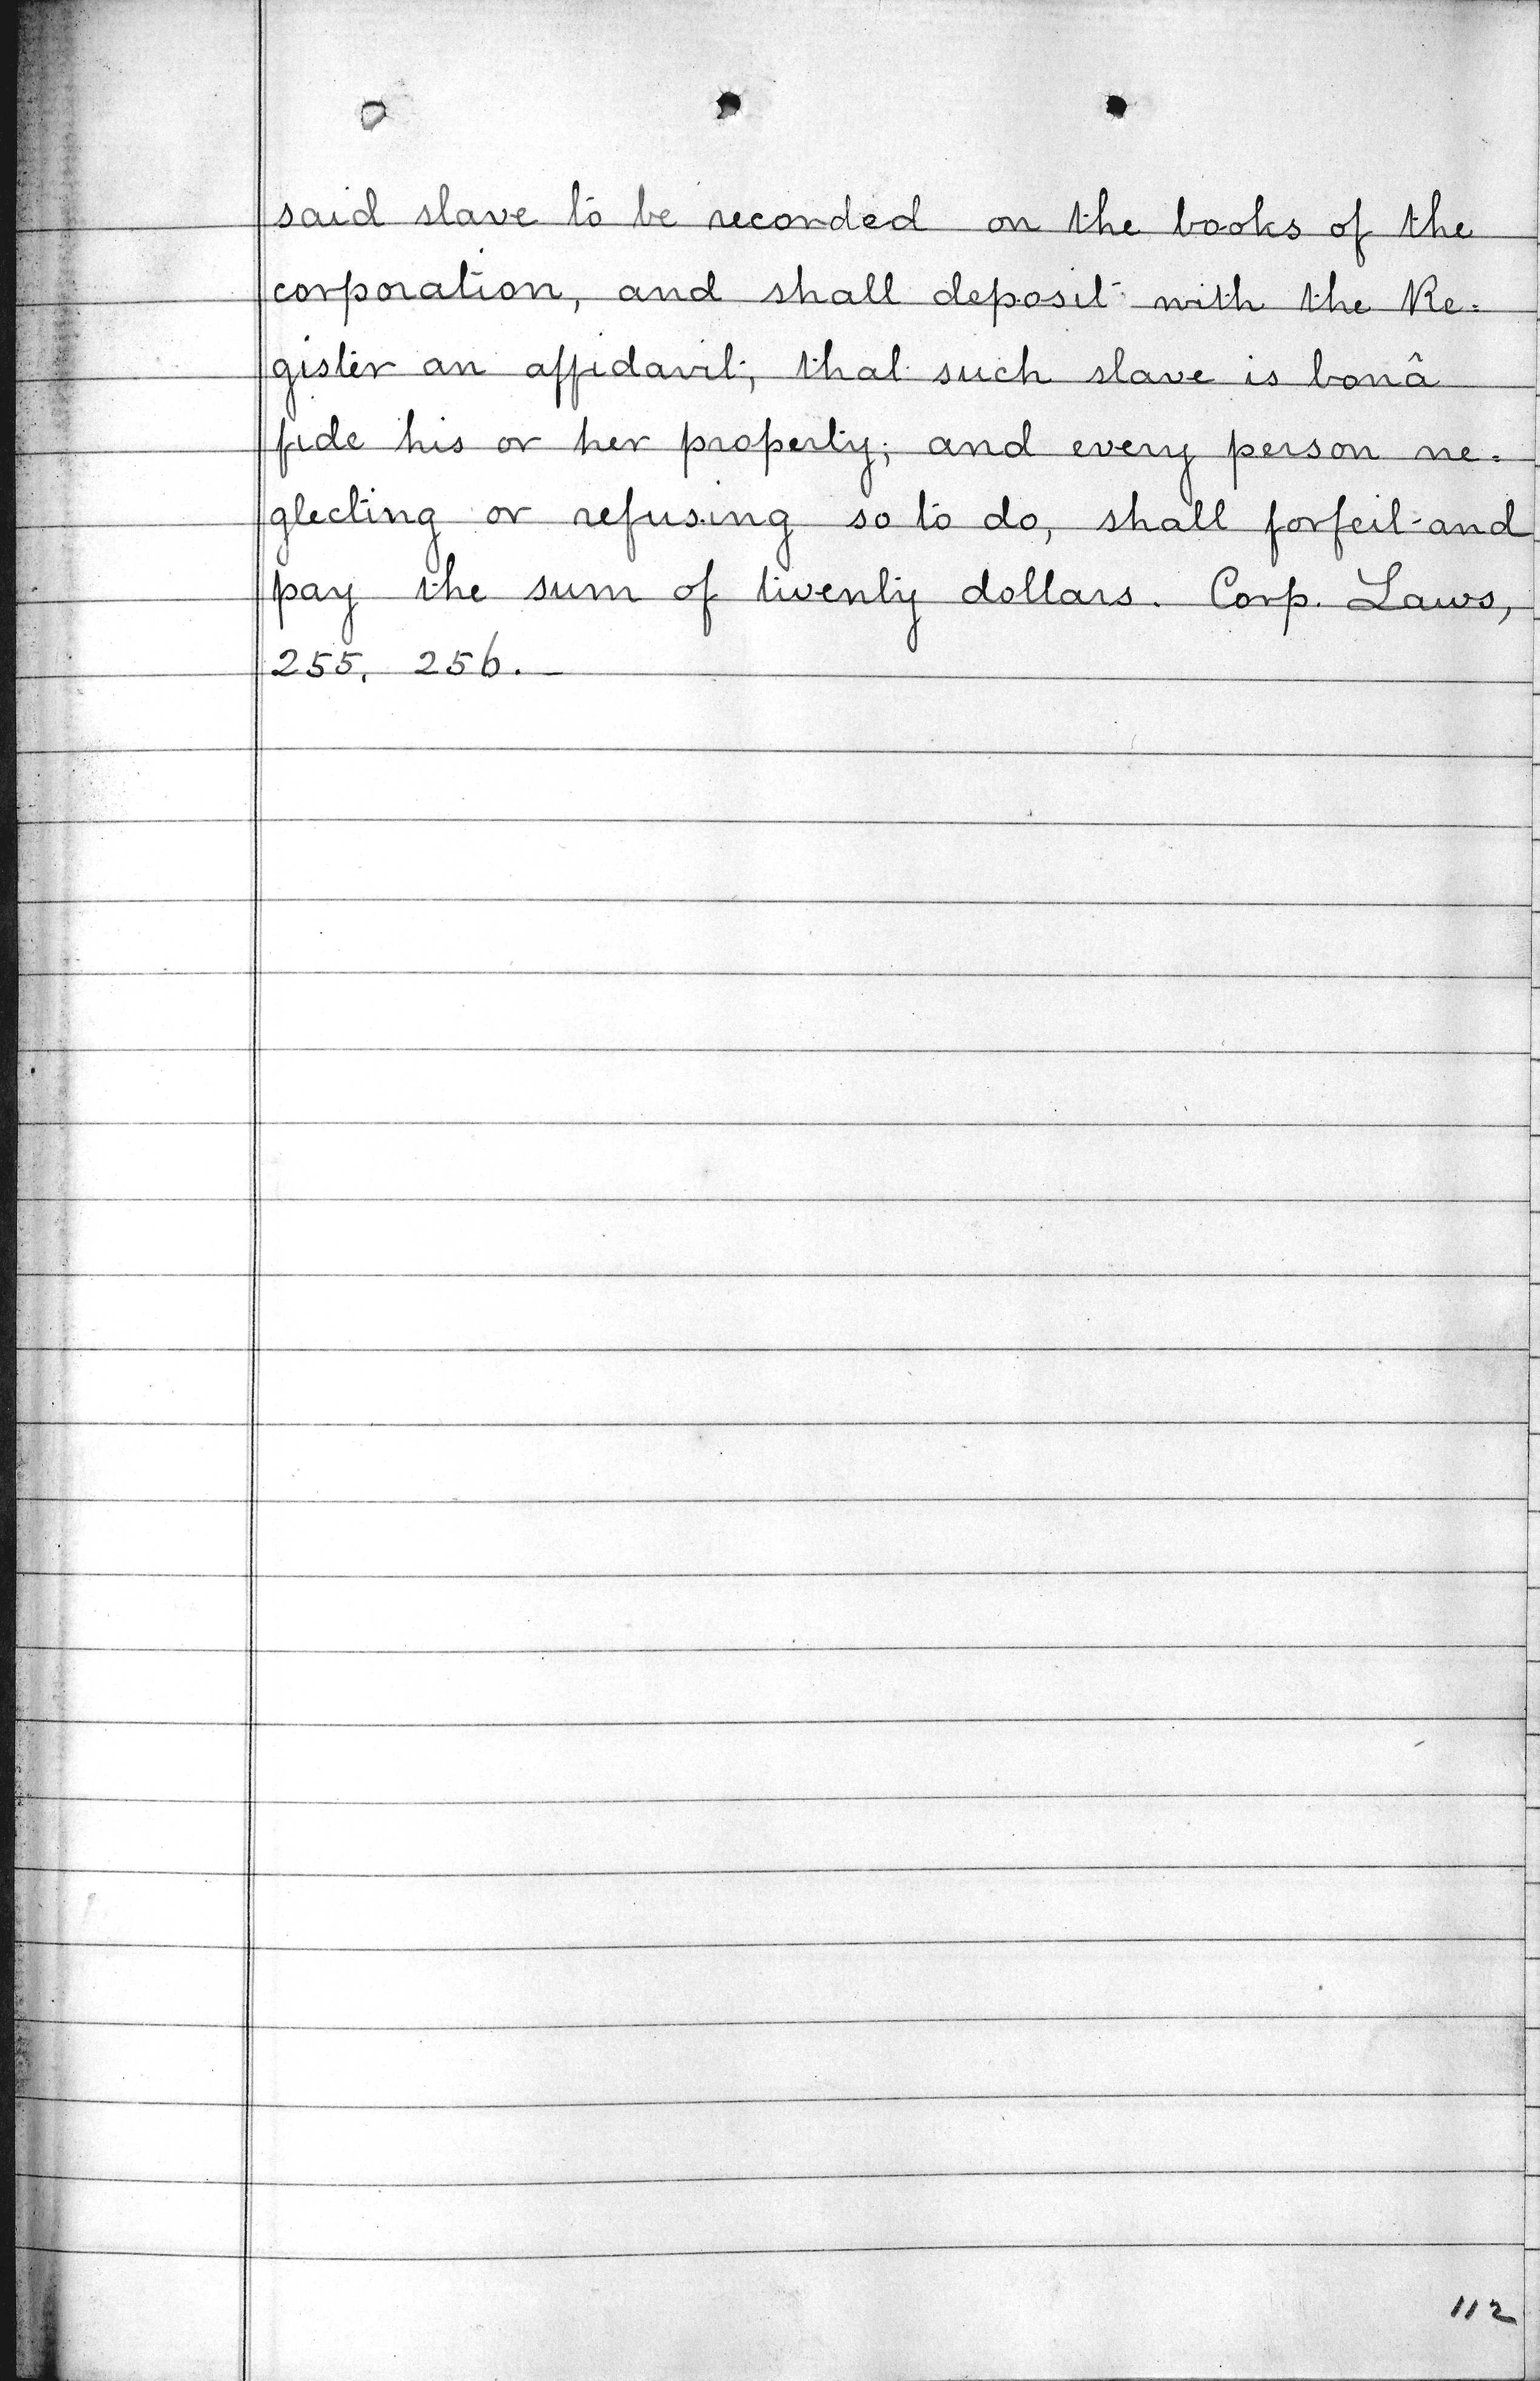 said slave to be recorded on the books of the
corporation, and shall deposit with the Re=
gister an affidavit, that such slave is bonâ
fide his or her property; and every person ne=
glecting or refusing so to do, shall forfeit and
pay the sum of twenty dollars. Corp. Laws,
255, 256. _
112